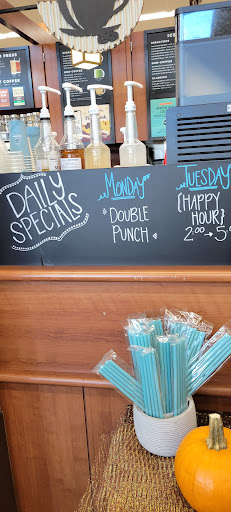 DAILY
SPECIALS
MONDAY
DOUBLE
PUNCH
TUESDAY
{HAPPY
HOUR}
2:00 → 5